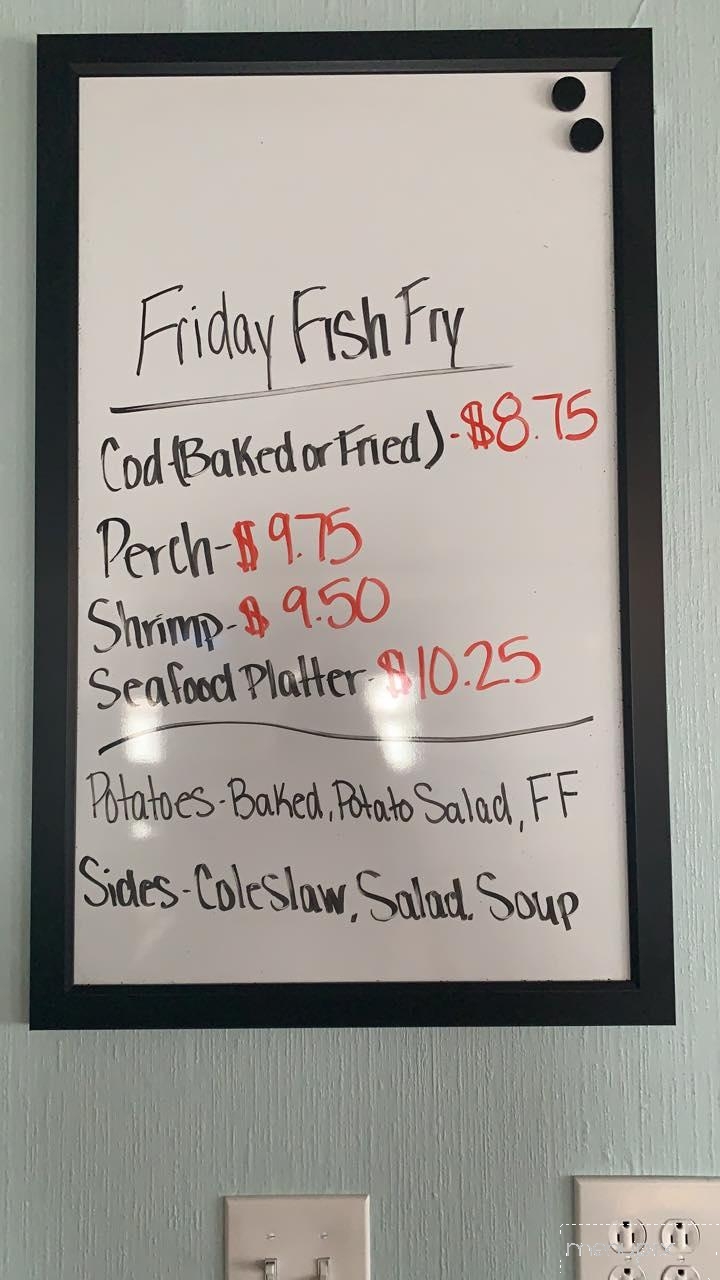 Friday Fish Fry
Cod (Baked or Fried) - $8.75
Perch - $9.75
Shrimp - $9.50
Seafood Platter - $10.25
Potatoes - Baked, Potato Salad, FF
Sides - Coleslaw, Salad, Soup